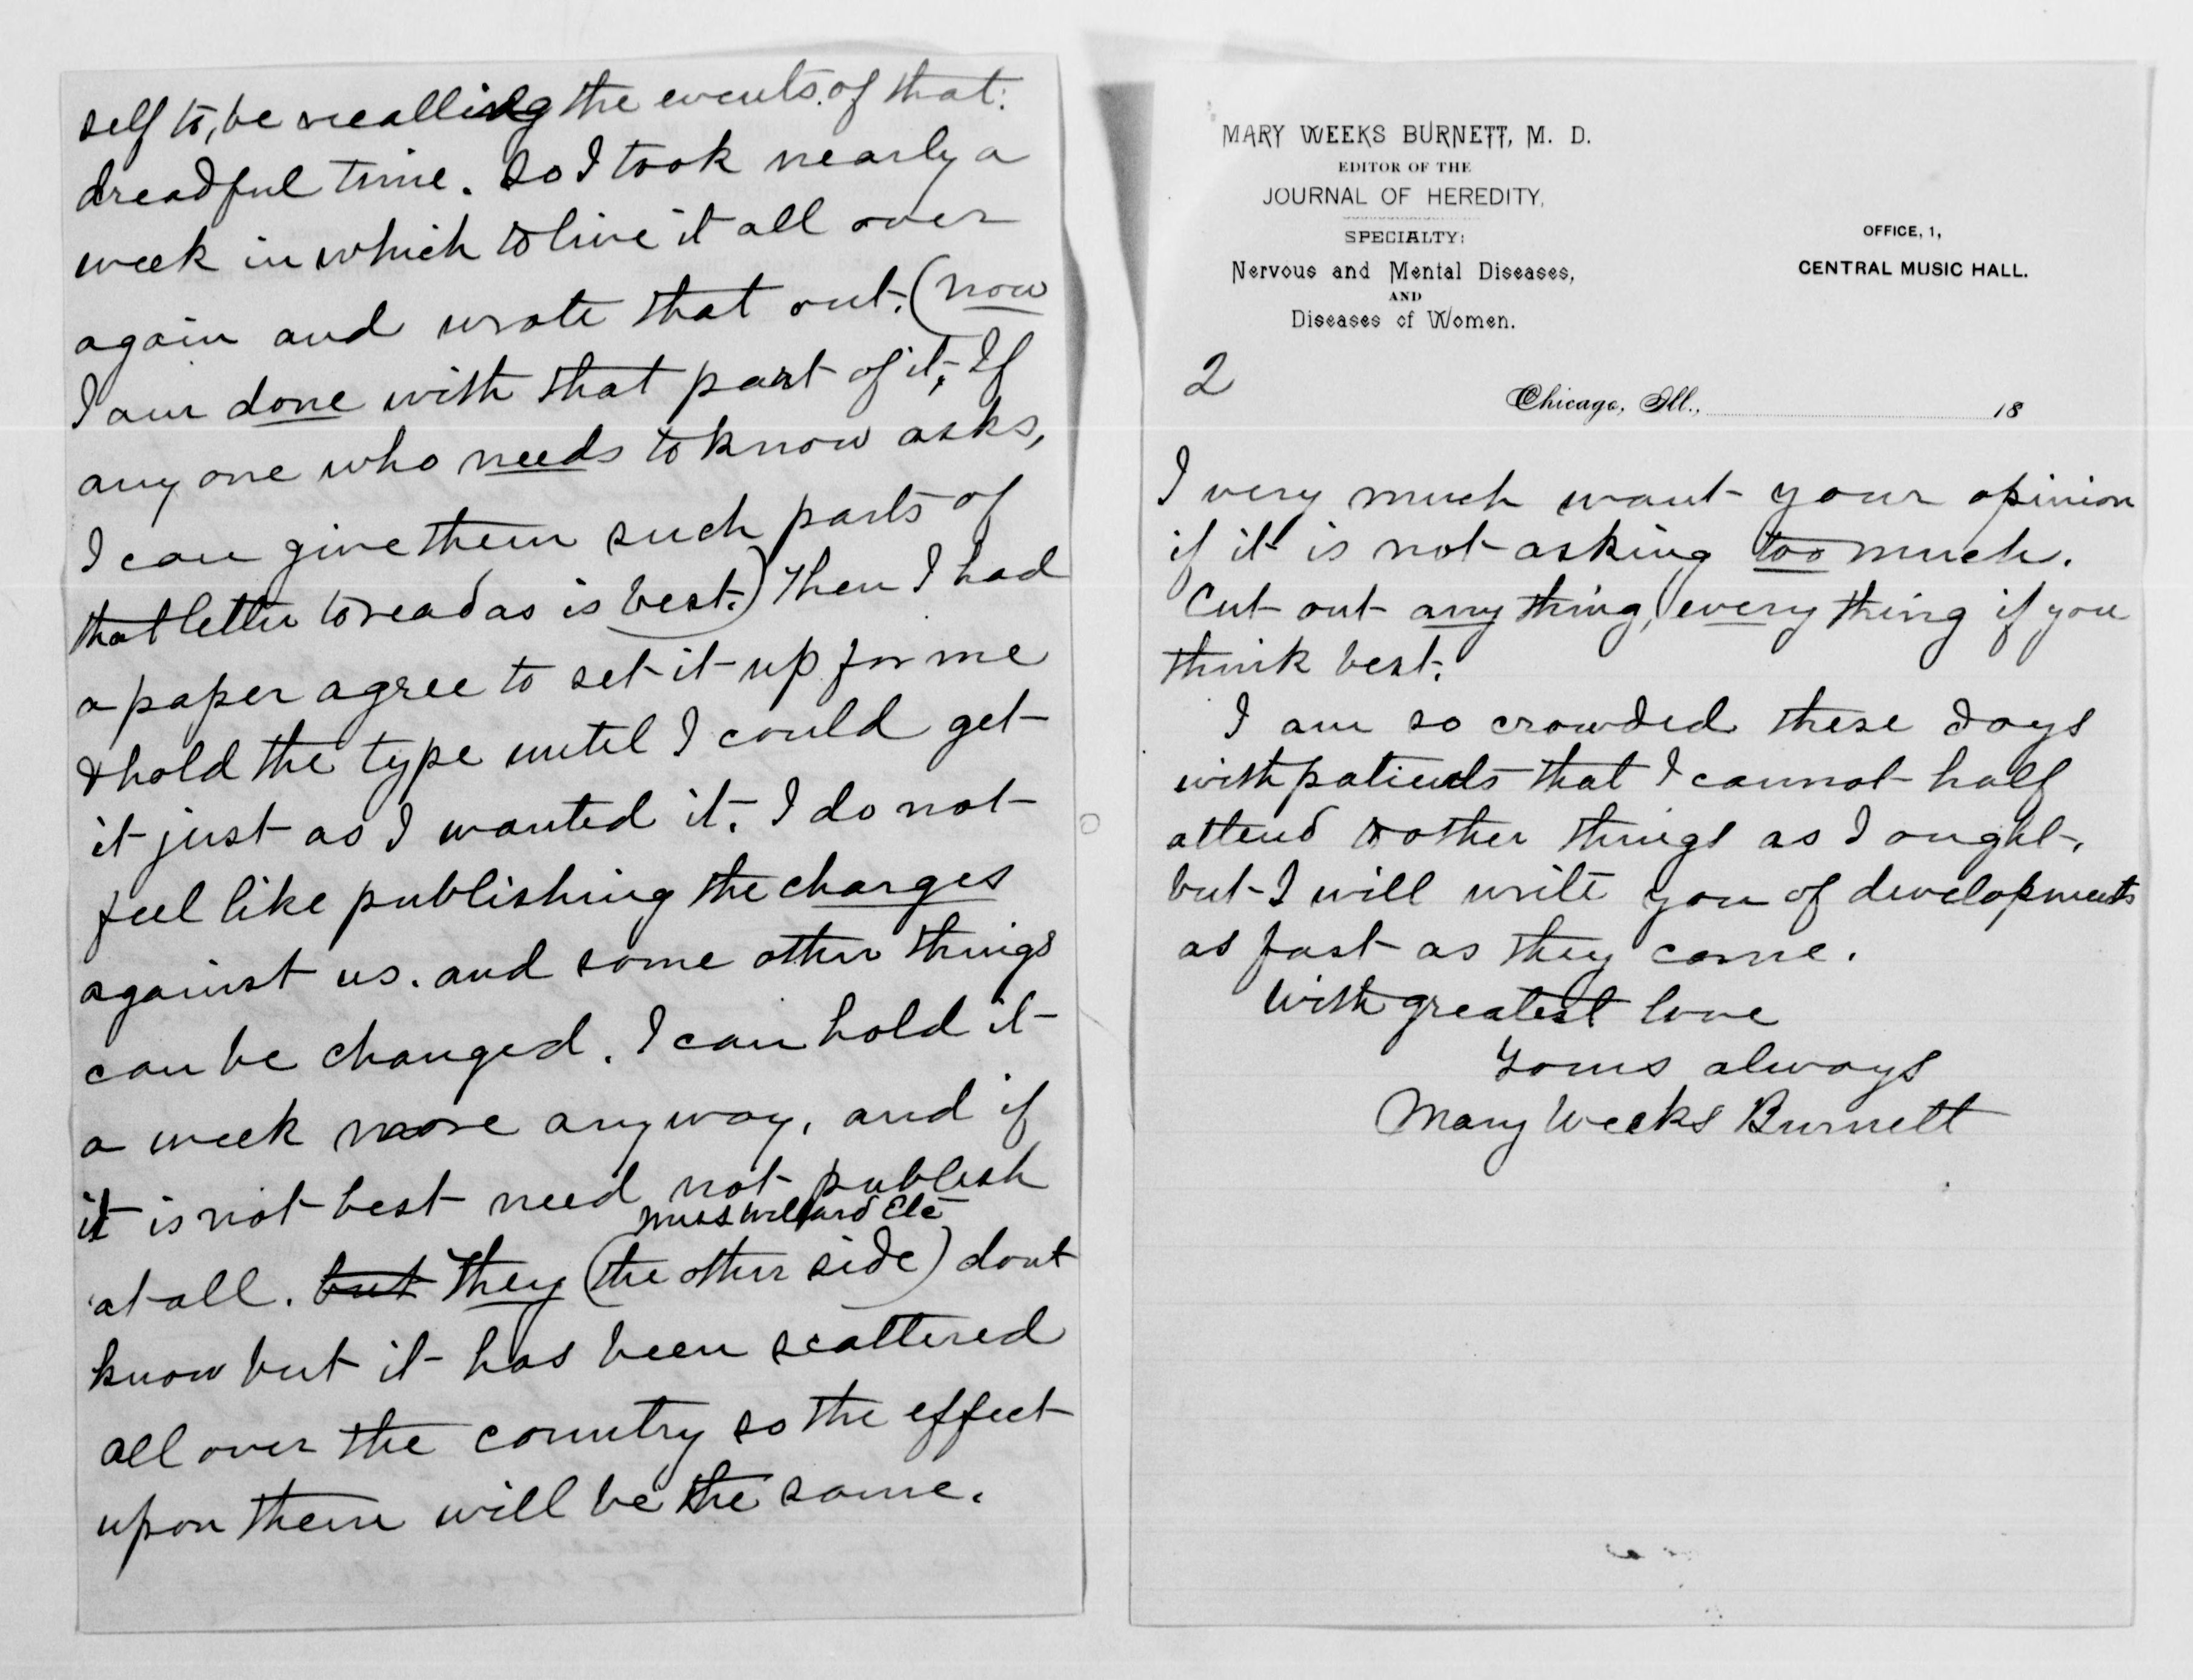 self to, be recalling the events of that
dreadful time. So I took nearly a
week in which to live it all over
again and wrote that out. (now
I am done with that part of it, If
any one who needs to know asks,
I can give them such parts of
that letter to read as is best.) Then I had
a paper agree to set it up for me
& hold the type until I could get
it just as I wanted it. I do not
feel like publishing the charges
against us. and some other things
can be changed. I can hold it
a week more any way, and if
it is not best need not publish
Miss Willard Etc
at all. but They (the other side) dont
know but it has been scattered
all over the country so the effect
upon them will be the same.
MARY WEEKS BURNETT, M. D.
EDITOR OF THE
JOURNAL OF HEREDITY,
SPECIALTY:
Nervous and Mental Diseases,
AND
Diseases of Women.
OFFICE, 1,
CENTRAL MUSIC HALL.
2
Chicago, Ill., 18
I very much want your opinion
if it is not asking too much.
Cut out any thing, every thing if you
think best.
I am so crowded these days
with patients that I cannot half
attend to other things as I ought,
but I will write you of developments
as fast as they come.
With greatest love
Yours always
Mary Weeks Burnett